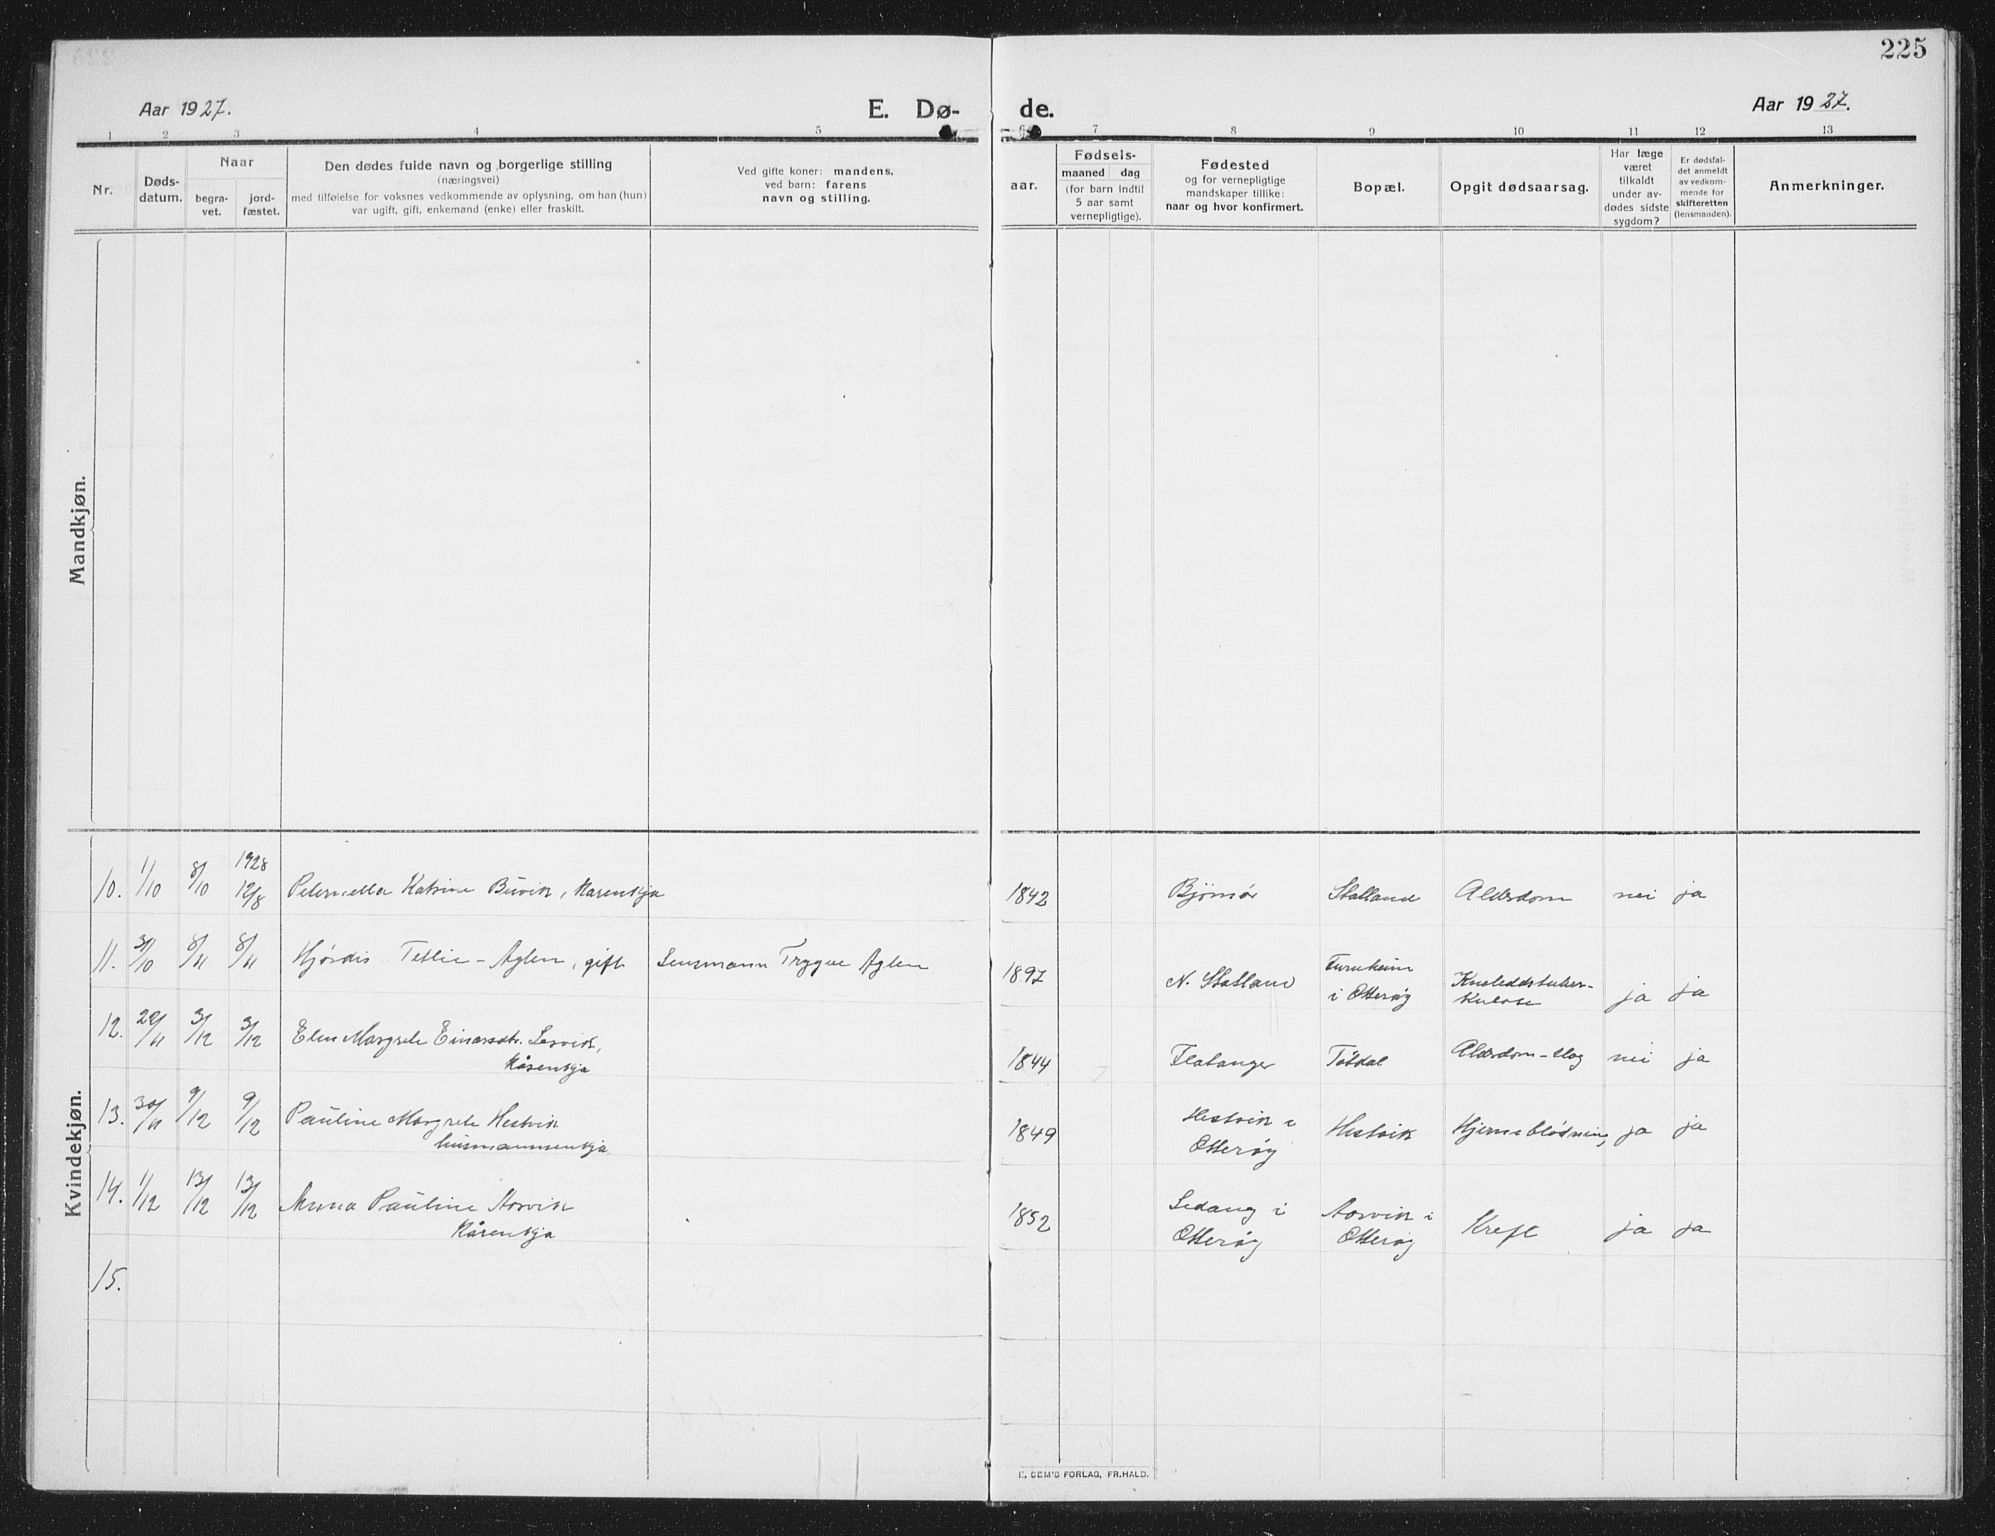 225
Aar 1927.
E. Dø-
de.
Aar 1927.
1 2 3 4 5 6 7 8 9 10 11 12 13
Nr.
Døds-
datum.
Naar
begra-
vet.
jord-
fæstet.
Den dødes fulde navn og borgerlige stilling
(næringsvei)
med tilføielse for voksnes vedkommende av oplysning, om han (hun)
var ugift, gift, enkemand (enke) eller fraskilt.
Ved gifte koner: mandens,
ved barn: farens
navn og stilling.
aar.
Fødsels-
maaned dag
(for barn indtil
5 aar samt
vernepligtige).
Fødested
og for vernepligtige
mandskaper tillike:
naar og hvor konfirmert.
Bopæl.
Opgit dødsaarsag.
Har læge
været
tilkaldt
under av-
dødes sidste
sygdom?
Er dødsfal-
det anmeldt
av vedkom-
mende for
skifteretten
(lensmanden).
Anmerkninger.
Mandkjøn.
Kvindekjøn.
1928
10. 1/10 8/10 12/8 Peternella Katrine Buvik, Kårenkja 1842 Bjørnør Statland Alderdom nei ja
11. 31/10 8/11 8/11 Hjørdis Tetlie-Aglen, gift Lensmann Trygve Aglen 1897 N. Statland Furuheim
i Otterøy
Kneleddstuber-
kulose
ja ja
12. 29/11 3/12 3/12 Elen Margrete Einarsdtr. Lesvik,
Kårenkja
1844 Flatanger Tøtdal Alderdom-slag nei ja
13. 30/11 9/12 9/12 Pauline Margrete Hestvik
husmannsenkja
1849 Hestvik i
Otterøy
Hestvik Hjerneblødning ja ja
14. 1/12 13/12 13/12 Anna Pauline Aosvik
Kårenkja
1852 Sedang i
Otterøy
Aosvik i
Otterøy
Kreft ja ja
15.
E. SEM'S FORLAG, FR.HALD.